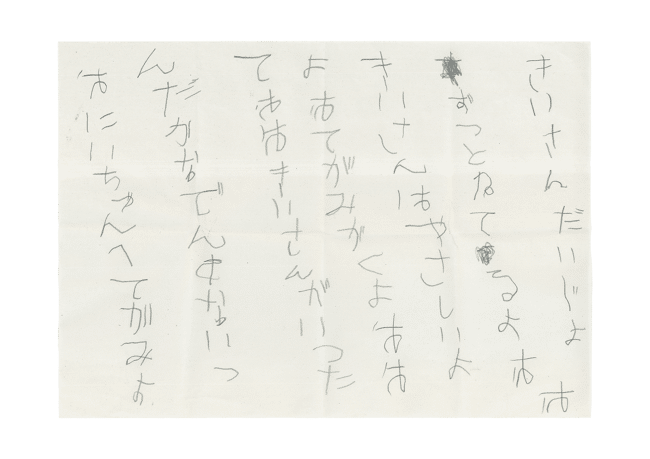 きいさんだいじよお
ずっとねてるよお
きいさんはやさしいよ
よおてがみがくよおは
ておはきいさんがいった
んだかなでんわないっ
おにいちゃんへてがみよ